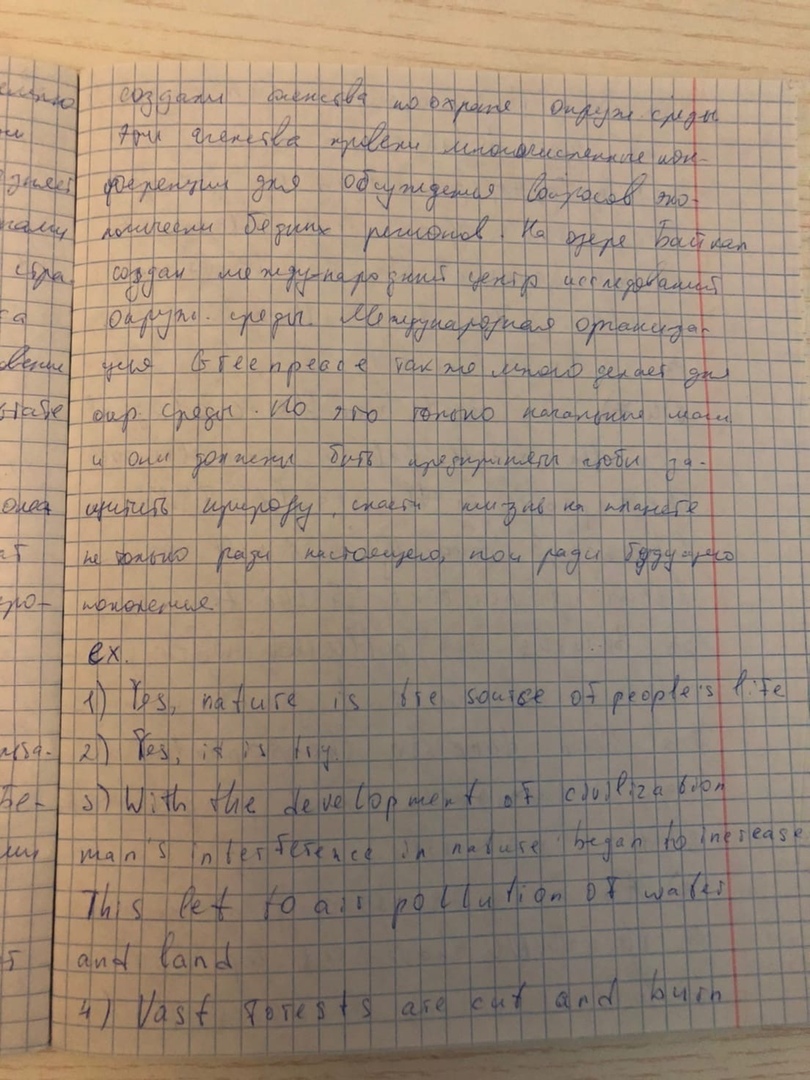 создали агенства по охране окруж. среды
Эти агенства провели многочисленные кон-
ференции для обсуждения вопросов эко-
логически бедных регионов. На озере Байкал
создан международный центр исследований
окруж. среды. Международная организа-
ция Greenpeace также много делает для
окр. среды. Но это только начальные шаги
и они должны быть предприняты чтобы за-
щитить природу, спасти жизнь на планете
не только ради настоящего, но и ради будущего
поколения
ex.
1) Yes, nature is the source of people's life
2) Yes, it is try.
3) With the development of civilization
man's interference in nature began to increase
This let to air pollution of water
and land
4) Vast forests are cut and burn